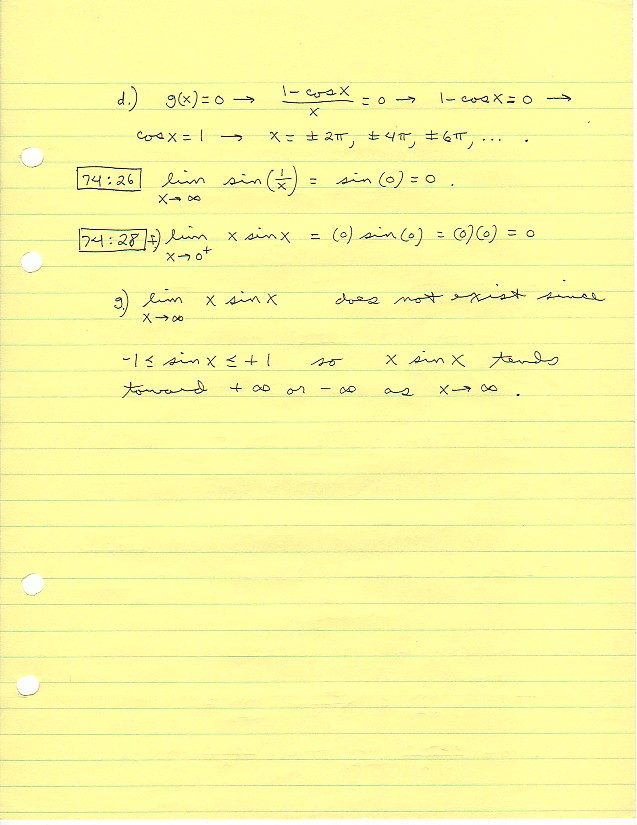 d.) g(x)=0 → (1-cosx)/x = 0 → 1-cosx=0 →
cosx=1 → x= ±2π, ±4π, ±6π, ... .
74:26 lim x→∞ sin(1/x) = sin(0)=0 .
74:28 f) lim x→0⁺ x sinx = (0) sin(0) = (0)(0) = 0
g) lim x→∞ x sinx does not exist since
-1 ≤ sinx ≤ +1 so x sinx tends
toward +∞ or -∞ as x→∞ .